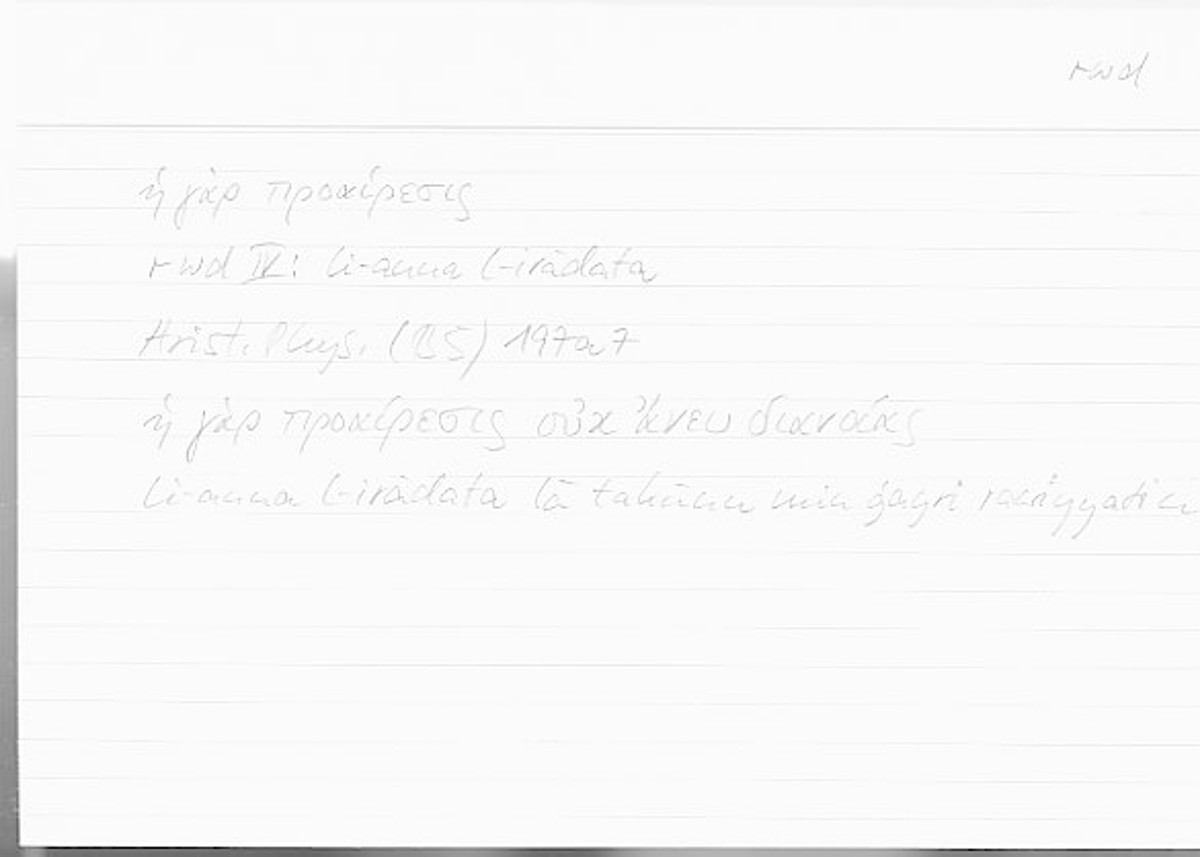 rwd
ἡ γὰρ προαίρεσις
rwd IV: li-anna l-irādata
Arist. Phys. (B5) 197a7
ἡ γὰρ προαίρεσις οὐκ ἄνευ διανοίας
li-anna l-irādata lā takūnu min ġayri